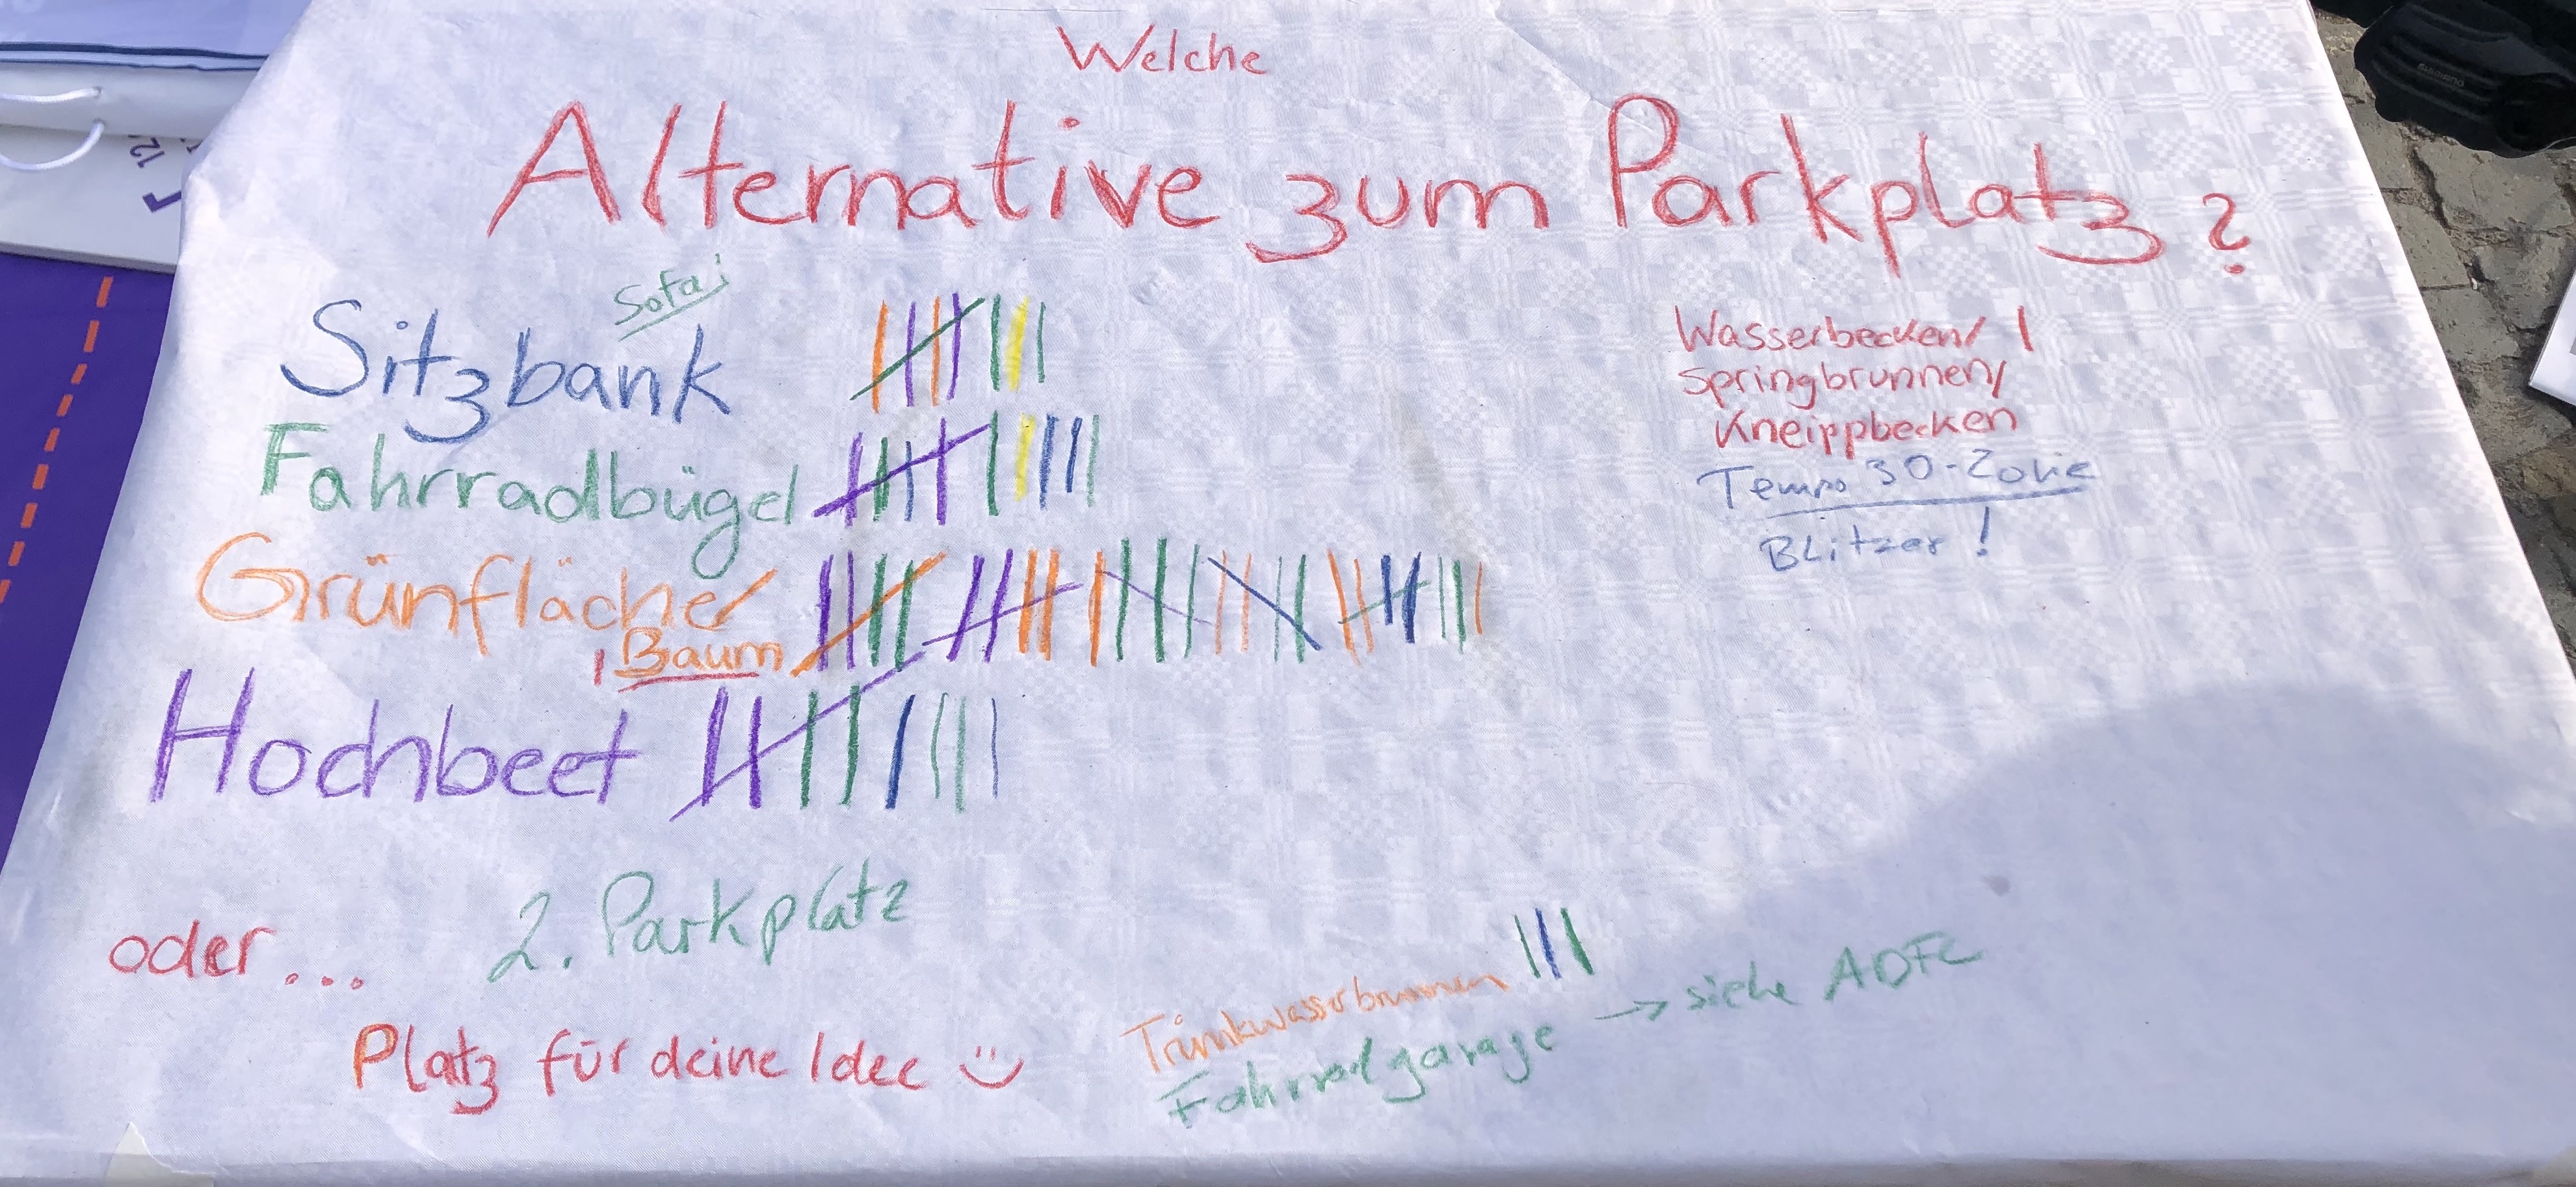 Welche
Alternative zum Parkplatz?
Sofa!
Sitzbank
Fahrradbügel
Grünfläche/
Baum
Hochbeet
Wasserbecken/
Springbrunnen/
Kneippbecken
Tempo 30-Zone
Blitzer!
oder...
2. Parkplatz
Platz für deine Idee
Trinkwasserbrunnen
Fahrradgarage → siehe ADFC